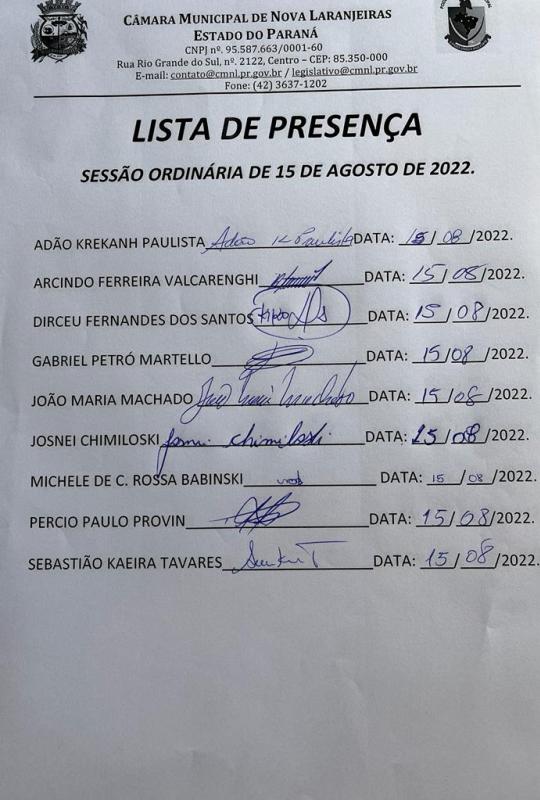 CÂMARA MUNICIPAL DE NOVA LARANJEIRAS
ESTADO DO PARANÁ
CNPJ nº. 95.587.663/0001-60
Rua Rio Grande do Sul, nº. 2122, Centro – CEP: 85.350-000
E-mail: contato@cmnl.pr.gov.br / legislativo@cmnl.pr.gov.br
Fone: (42) 3637-1202
LISTA DE PRESENÇA
SESSÃO ORDINÁRIA DE 15 DE AGOSTO DE 2022.
ADÃO KREKANH PAULISTA Adão K Paulista DATA: 15/08/2022.
ARCINDO FERREIRA VALCARENGHI DATA: 15/08/2022.
DIRCEU FERNANDES DOS SANTOS DATA: 15/08/2022.
GABRIEL PETRÓ MARTELLO DATA: 15/08/2022.
JOÃO MARIA MACHADO João Maria Machado DATA: 15/08/2022.
JOSNEI CHIMILOSKI chimiloski DATA: 15/08/2022.
MICHELE DE C. ROSSA BABINSKI DATA: 15/08/2022.
PERCIO PAULO PROVIN DATA: 15/08/2022.
SEBASTIÃO KAEIRA TAVARES DATA: 15/08/2022.